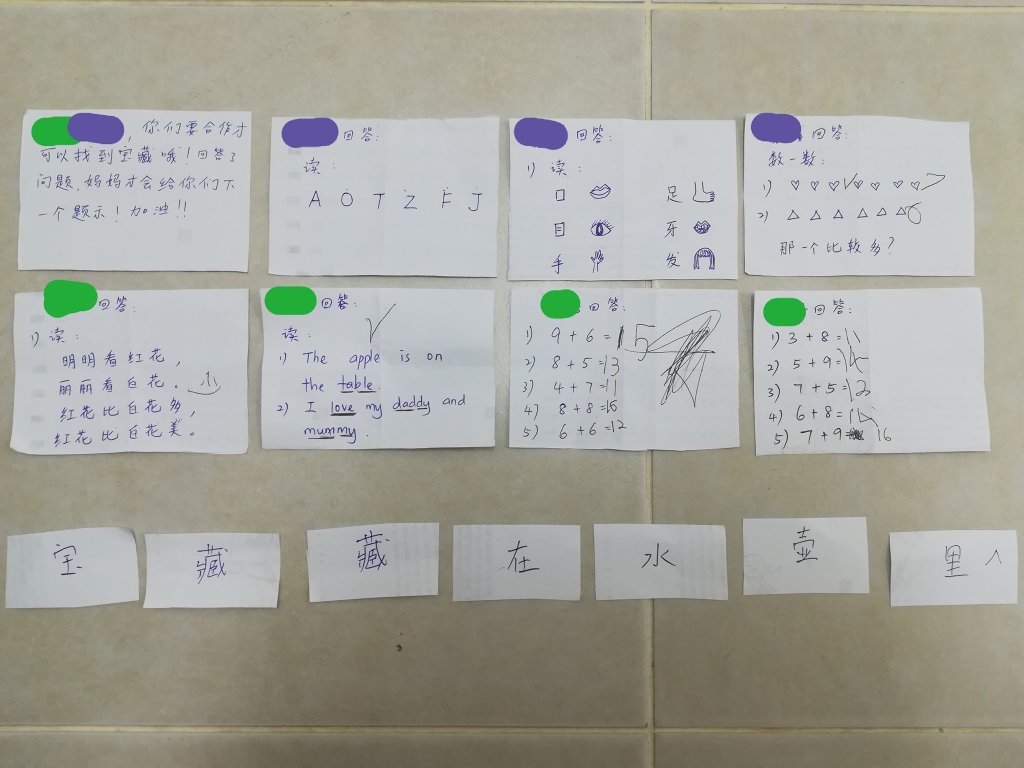 ，你们要合作才
可以找到宝藏哦！回答了
问题，妈妈才会给你们下
一个题示！加油！！
回答：
读：
A O T Z F J
回答：
1) 读：
口 足
目 牙
手 发
回答：
数一数：
1) 7
2) 6
那一个比较多？
回答：
1) 读：
明明看红花，
丽丽看白花。
红花比白花多，
红花比白花美。
回答：
读：
1) The apple is on
the table.
2) I love my daddy and
mummy.
回答：
1) 9 + 6 = 15
2) 8 + 5 = 13
3) 4 + 7 = 11
4) 8 + 8 = 16
5) 6 + 6 = 12
回答：
1) 3 + 8 = 11
2) 5 + 9 = 14
3) 7 + 5 = 12
4) 6 + 8 = 14
5) 7 + 9 = 16
宝 藏 藏 在 水 壶 里